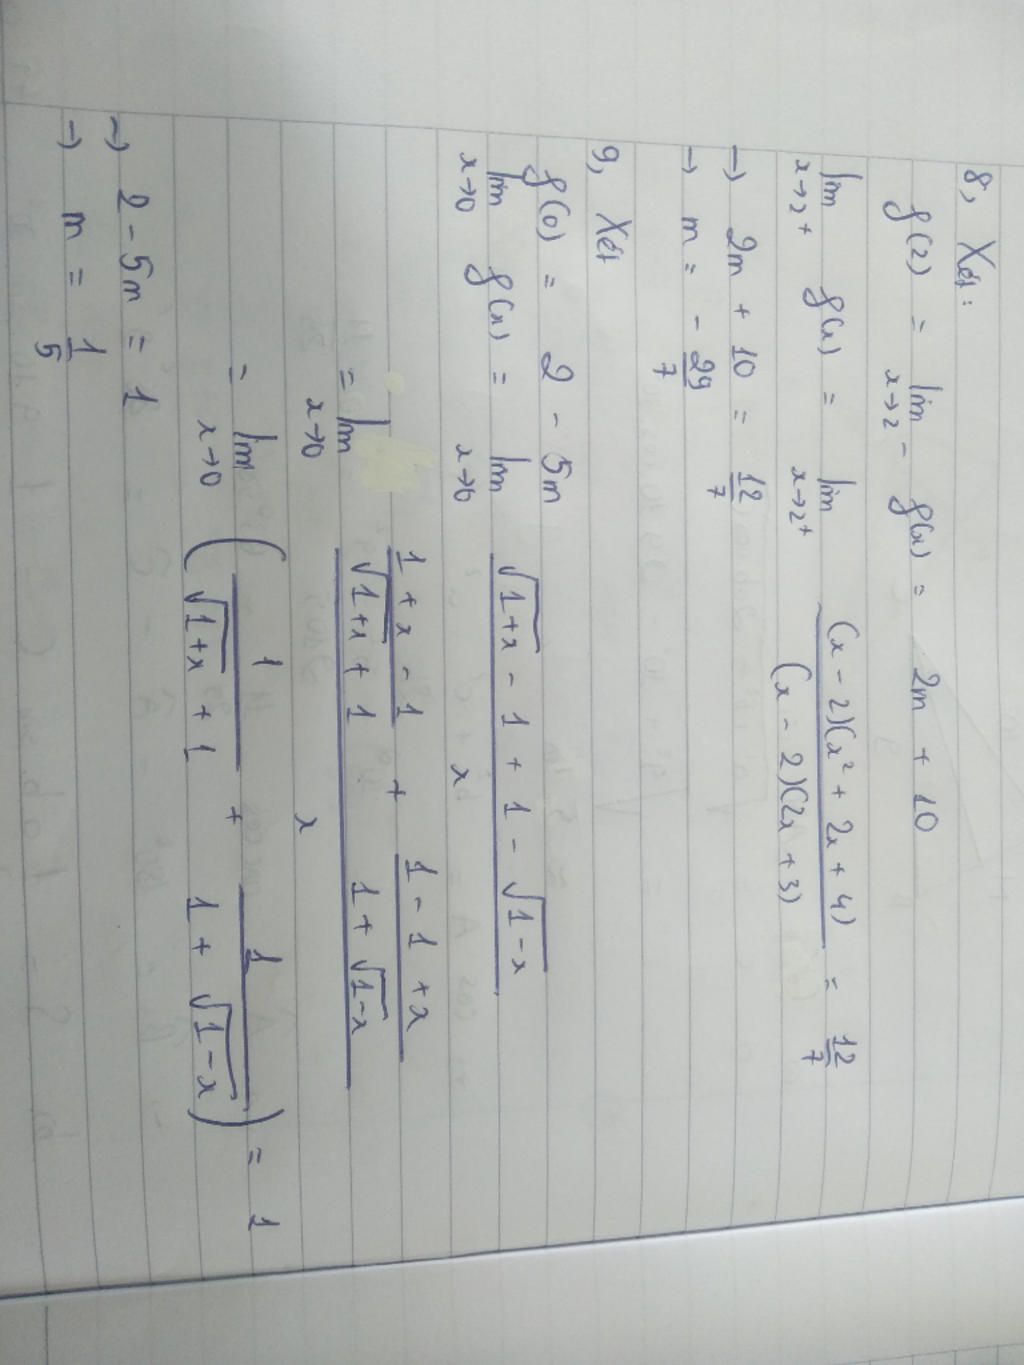 8, Xét:
f(2) = lim x→2⁻ f(x) = 2m + 10
lim x→2⁺ f(x) = lim x→2⁺ (x - 2)(x² + 2x + 4) / (x - 2)(2x + 3) = 12/7
→ 2m + 10 = 12/7
→ m = - 29/7
9, Xét
f(0) = 2 - 5m
lim x→0 f(x) = lim x→0 (√(1+x) - 1 + 1 - √(1-x)) / x
= lim x→0 ((1 + x - 1)/(√(1+x) + 1) + (1 - 1 + x)/(1 + √(1-x))) / x
= lim x→0 (1/(√(1+x) + 1) + 1/(1 + √(1-x))) = 1
→ 2 - 5m = 1
→ m = 1/5